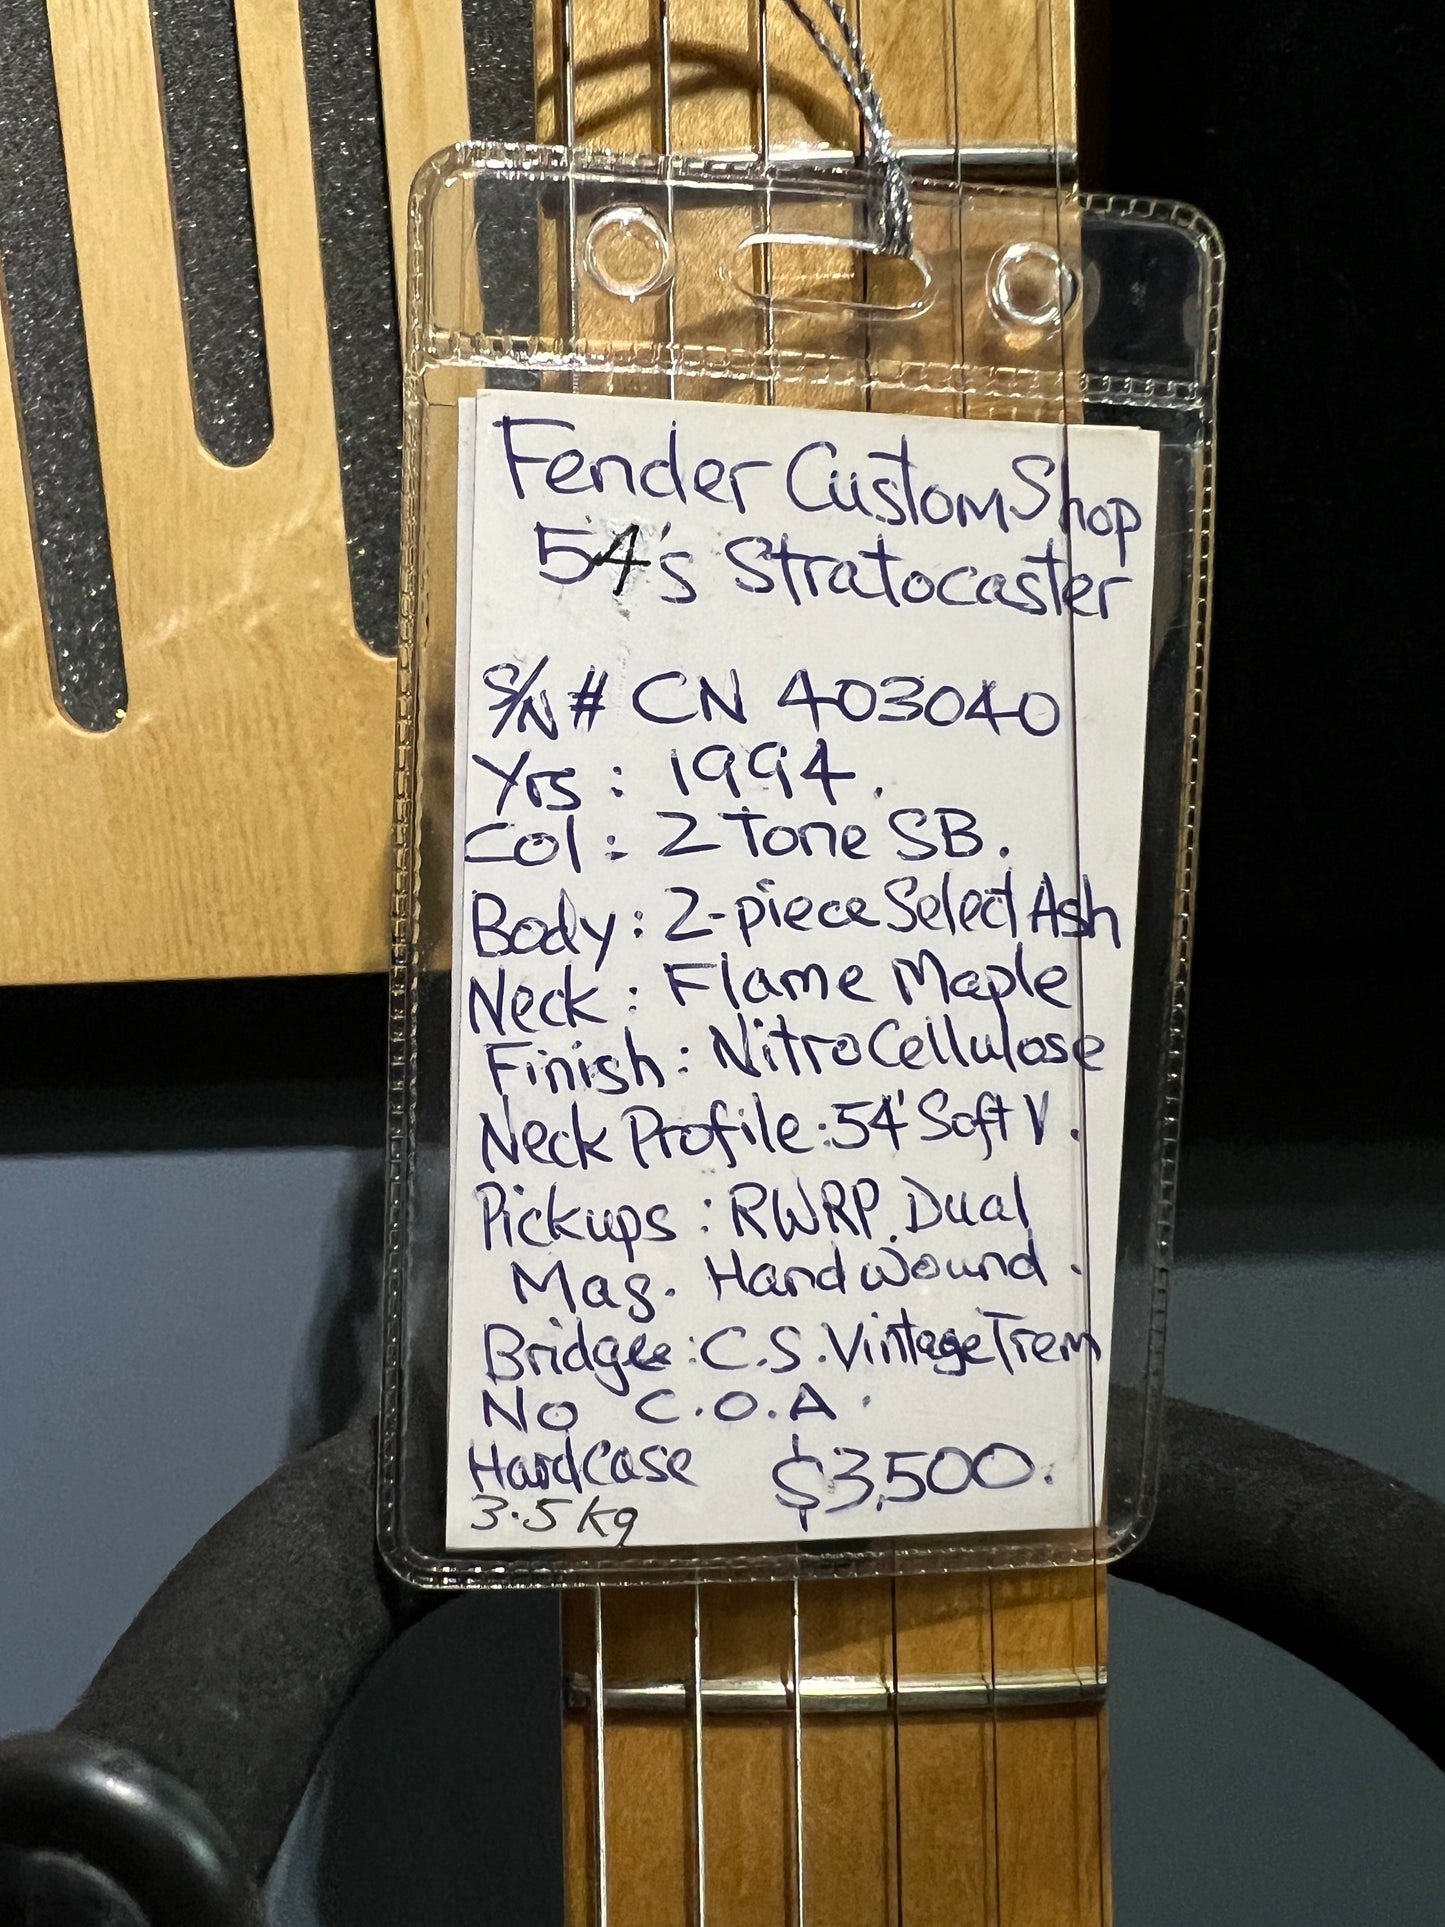 Fender Custom Shop
54's Stratocaster
S/N# CN 403040
Yrs : 1994.
Col : 2 Tone SB.
Body : 2-piece Select Ash
Neck : Flame Maple
Finish : NitroCellulose
Neck Profile : 54' Soft V.
Pickups : RWRP. Dual
Mag. Handwound.
Bridge : C.S. Vintage Trem
No C.O.A.
Hardcase $3,500.
3.5 kg